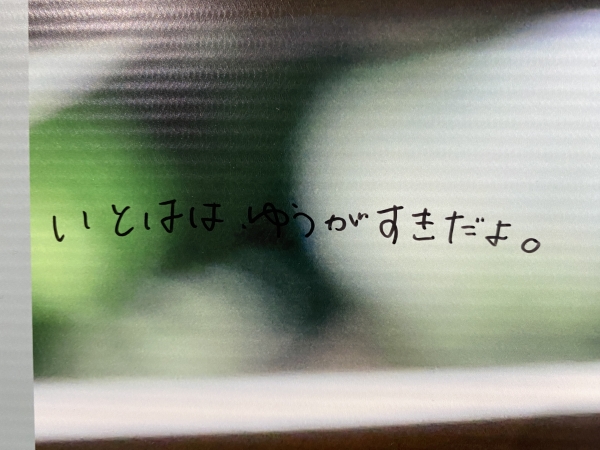 いとはは、ゆうがすきだよ。